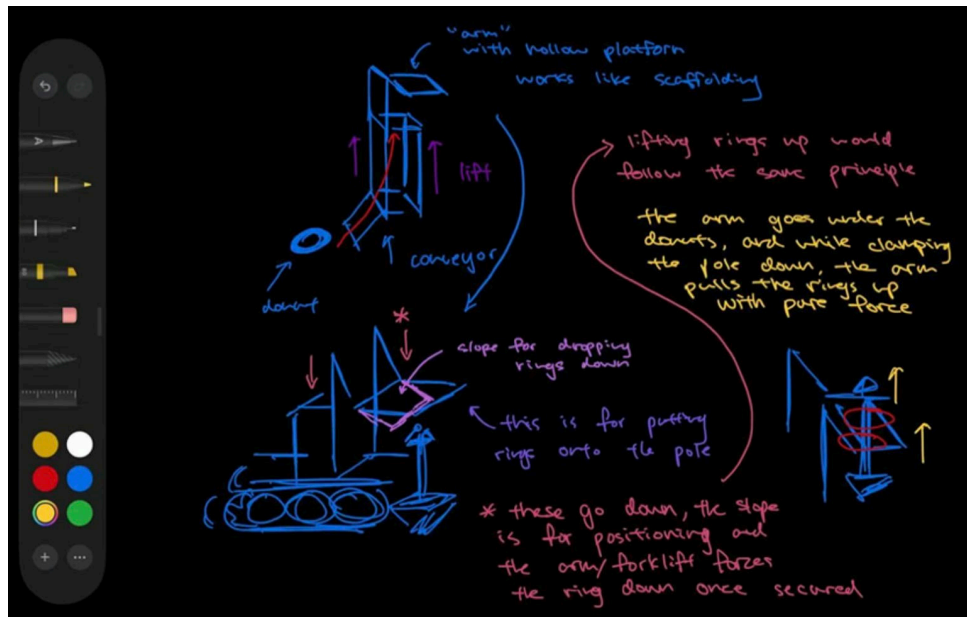 "arm"
with hollow platform
works like scaffolding
lift
conveyor
donut
lifting rings up would
follow the same principle
the arm goes under the
donuts, and while clamping
the pole down, the arm
pulls the rings up
with pure force
*
slope for dropping
rings down
this is for putting
rings onto the pole
* these go down, the slope
is for positioning and
the arm/forklift forces
the ring down once secured